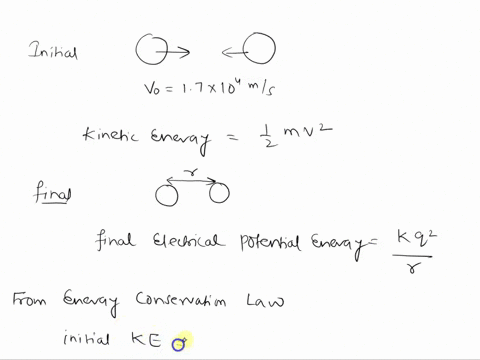 Initial
V₀ = 1.7×10⁴ m/s
Kinetic Energy = 1/2 mv²
r
final
final Electrical Potential Energy = Kq²/r
From Energy Conservation Law
initial KE